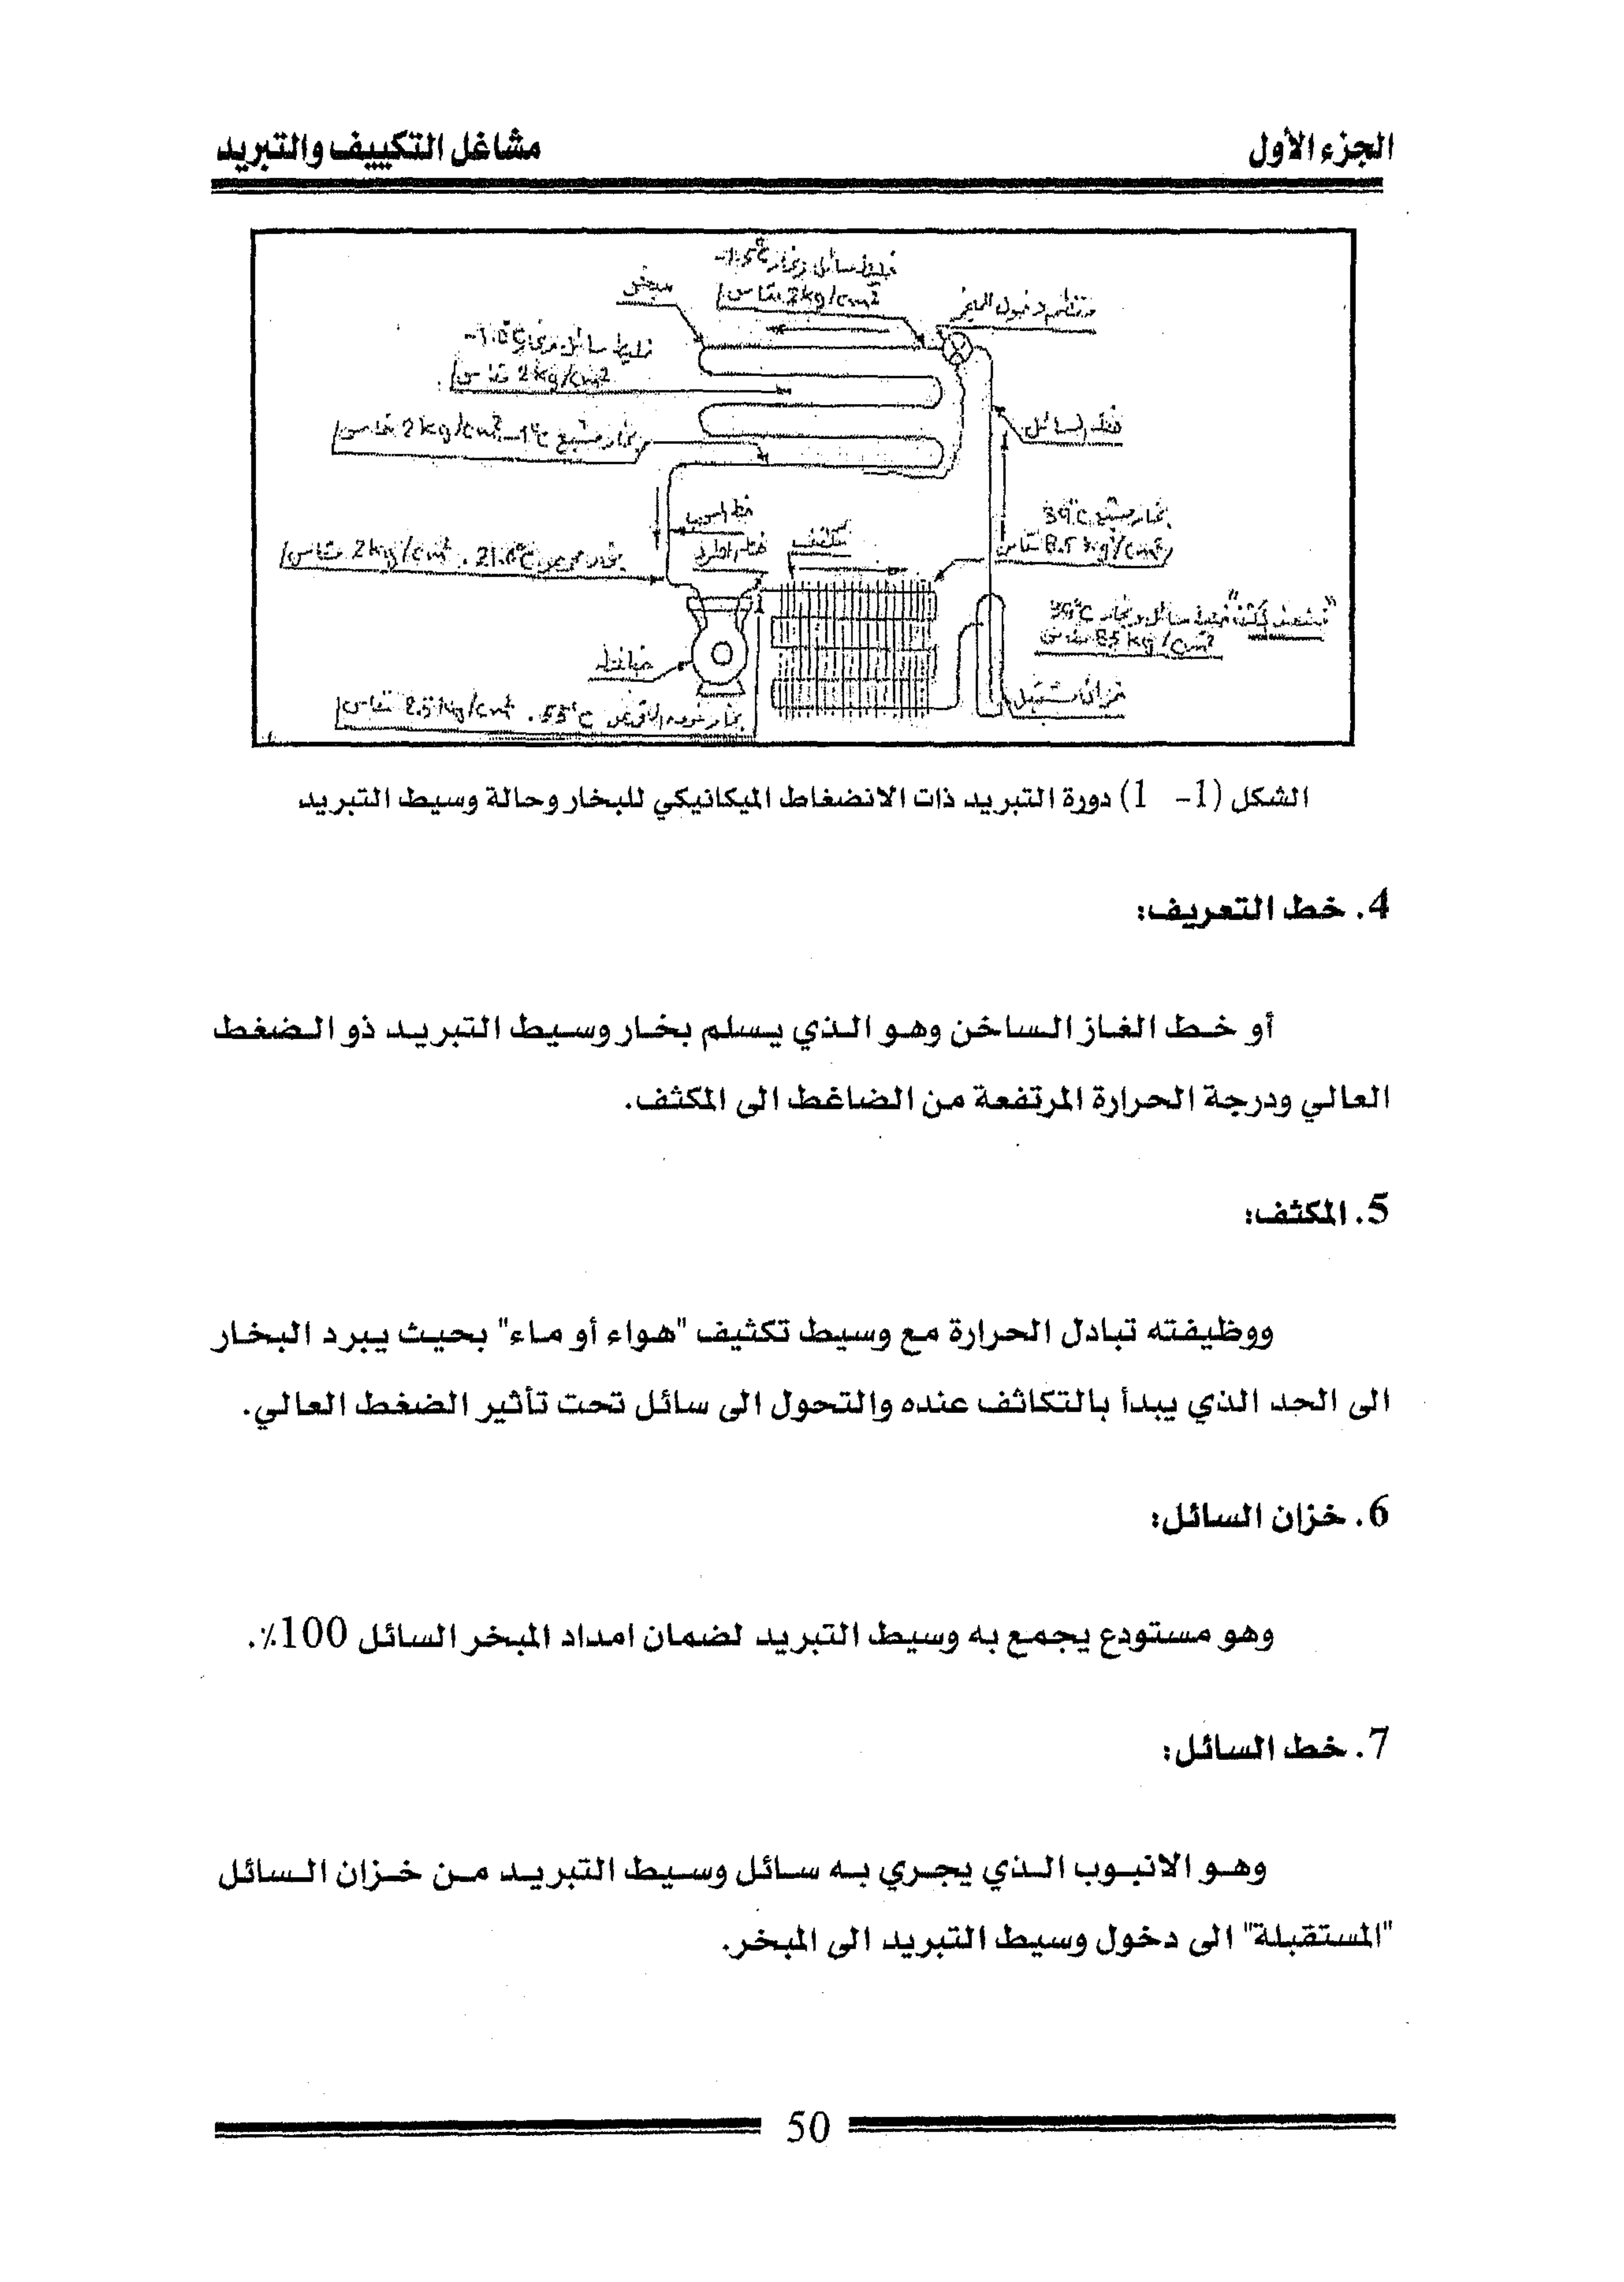 الجزء الأول
مشاغل التكييف والتبريد
مبخر
2 kg/cm²
خليط سائل وبخار
2 kg/cm²
خط السائل
بخار مشبع -1°C 2 kg/cm²
بخار مشبع 39°C
8.5 kg/cm²
مكثف
2 kg/cm²
خليط سائل وبخار 39°C
8.5 kg/cm²
ضاغط
55°C
الشكل (1- 1) دورة التبريد ذات الانضغاط الميكانيكي للبخار وحالة وسيط التبريد
4. خط التعريف:
أو خط الغاز الساخن وهو الذي يسلم بخار وسيط التبريد ذو الضغط
العالي ودرجة الحرارة المرتفعة من الضاغط الى المكثف.
5. المكثف:
ووظيفته تبادل الحرارة مع وسيط تكثيف "هواء أو ماء" بحيث يبرد البخار
الى الحد الذي يبدأ بالتكاثف عنده والتحول الى سائل تحت تأثير الضغط العالي.
6. خزان السائل:
وهو مستودع يجمع به وسيط التبريد لضمان امداد المبخر السائل 100٪.
7. خط السائل:
وهو الانبوب الذي يجري به سائل وسيط التبريد من خزان السائل
"المستقبلة" الى دخول وسيط التبريد الى المبخر.
50